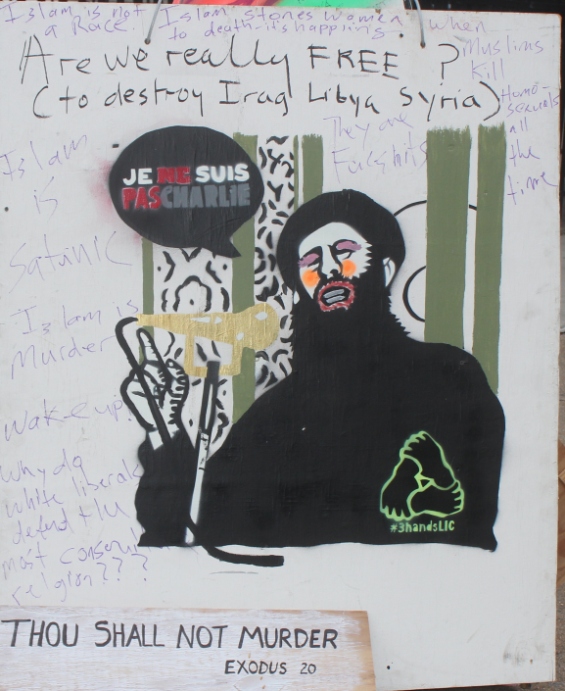 Islam is not a Race.
Islam stones women to death-it's happening
when Muslims Kill Homosexuals all the time
They are Fascists
Are we really FREE ?
(to destroy Iraq Libya Syria)
JE NE SUIS
PAS CHARLIE
Islam
is
Satanic
Islam is
Murder
wake up!
Why do
white liberals
defend the
most conserv
religion???
#3handsLIC
THOU SHALL NOT MURDER
EXODUS 20